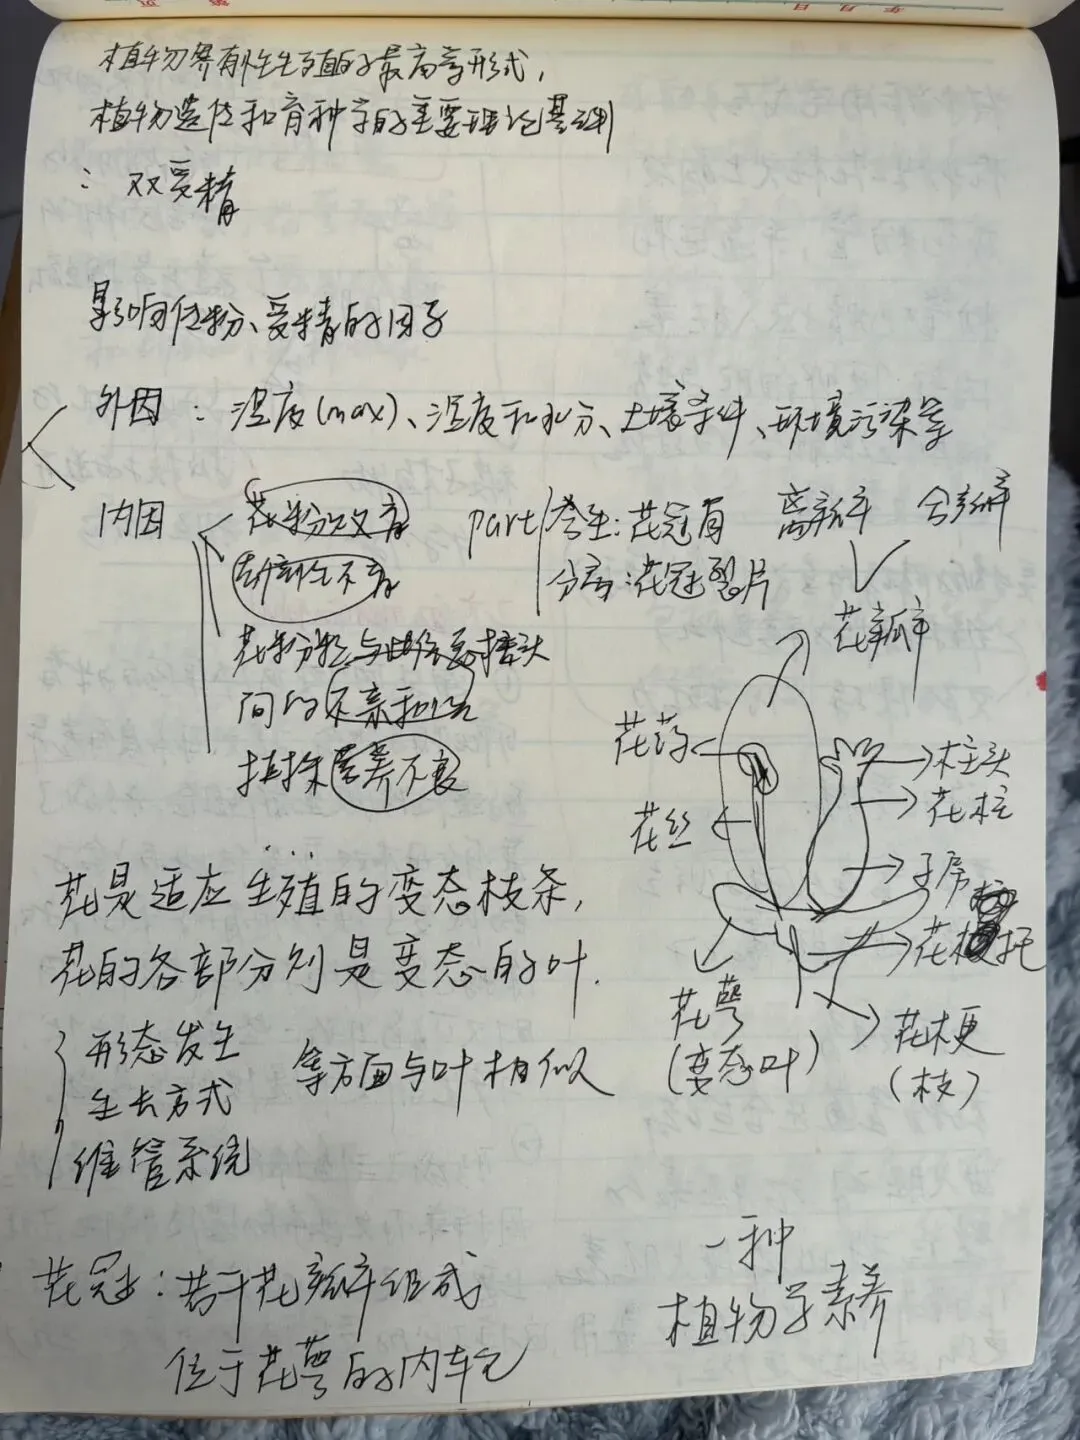 植物界有性生殖的最高等形式,
植物遗传和育种学的重要理论基础
: 双受精
影响传粉、受精的因子
外因 : 温度(max)、湿度和水分、土壤条件、环境污染等
内因
花粉败育
雌蕊不育
花粉粒与雌蕊柱头
间的不亲和性
植株营养不良
part
合生:花冠有
分离:花冠
片
离瓣 合瓣
花瓣
花药
柱头
花柱
花丝
子房
花托
花萼
(变态叶)
花梗
(枝)
花是适应生殖的变态枝条,
花的各部分别是变态的叶.
形态发生
生长方式
维管系统
等方面与叶相似
花冠:若干花瓣组成
位于花萼的内轮
一种
植物学素养